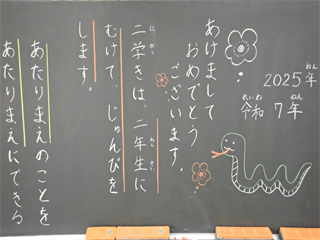 ねん
2025年
れいわ ねん
令和 7年
あけまして
おめでとう
ございます。
二学きは、二年生に
むけて、じゅんびを
します。
あたりまえのことを
あたりまえにできる